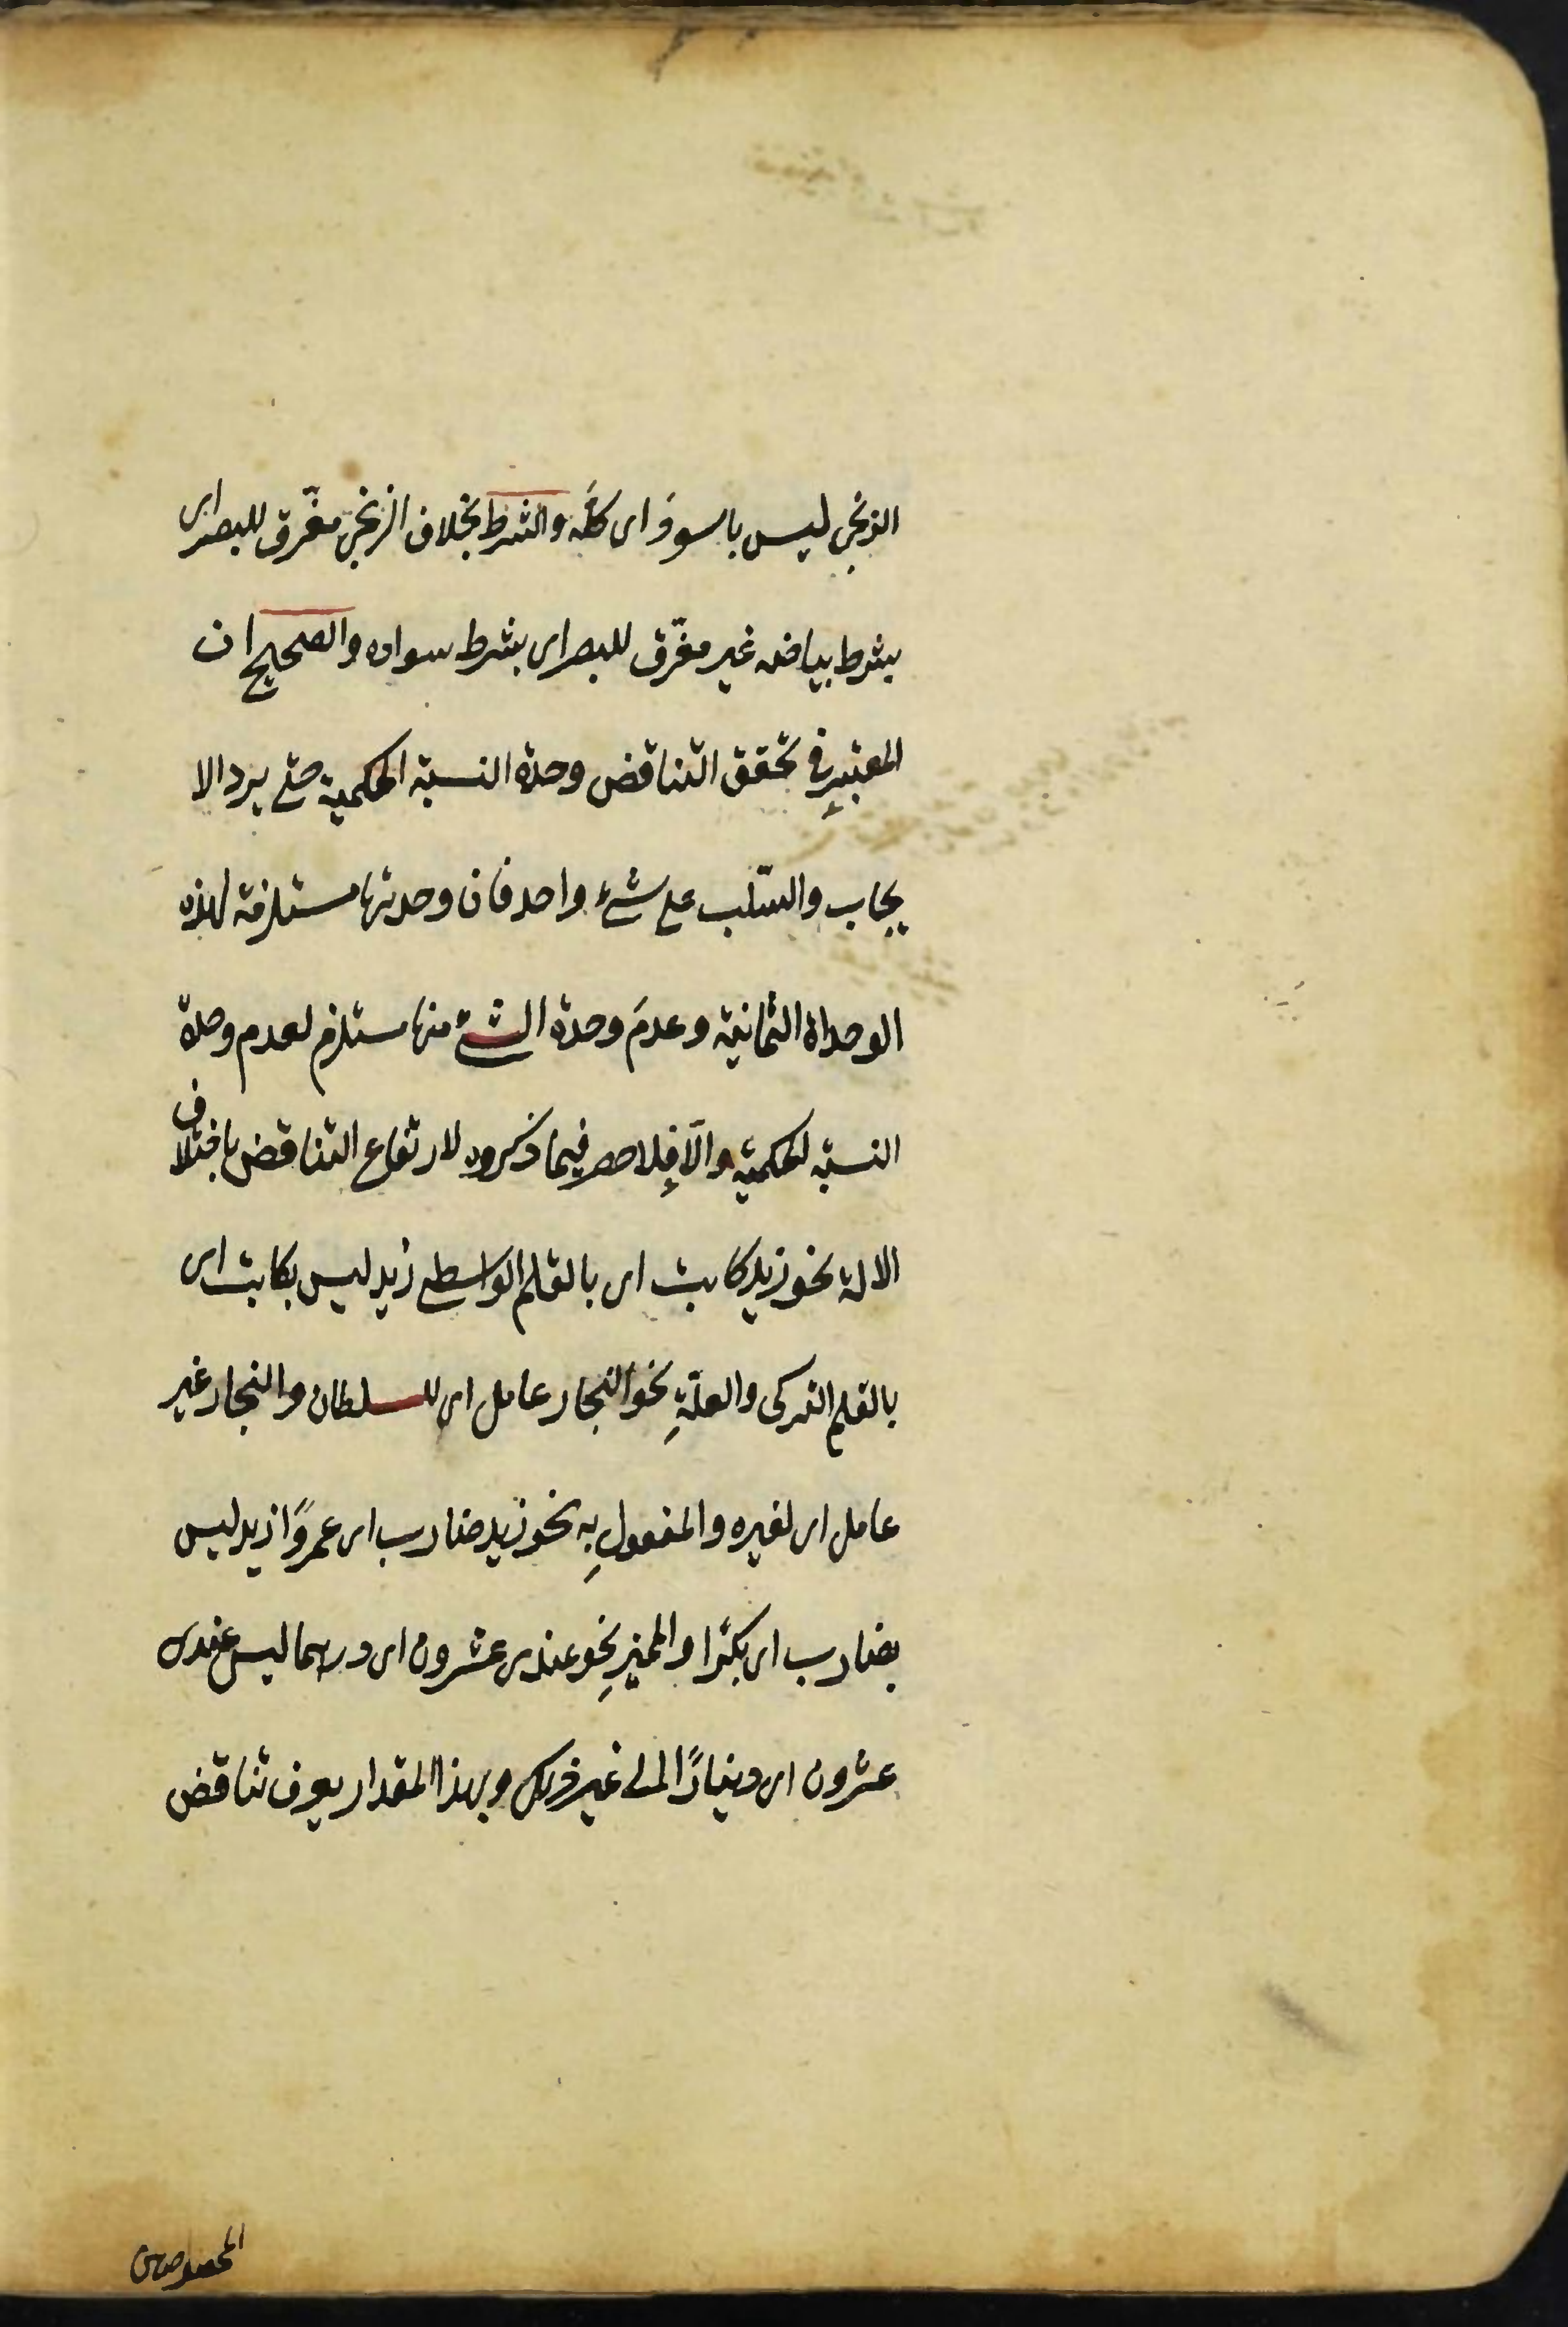 الزنجى ليس باسود اى كلّه والشرط بخلاف الزنجى مفرّق للبصر اى
بشرط بياضه غير مفرّق للبصر اى بشرط سواده والصحيح ان
المعتبر فى تحقق التناقض وحدة النسبة الحكمية حتى يرد الا
يجاب والسّلب على شئ واحد فان وحدتها مستلزمة لهذه
الوحداة الثمانية وعدمَ وحدة الشئ منها مستلزم لعدم وحدة
النسبة الحكمية والّا فلا حصر فيما ذكروه لارتفاع التناقض باختلاف
الالة نحو زيد كاتب اى بالقلم الواسطى زيد ليس بكاتب اى
بالقلم التركى والعلّةِ نحو النجار عامل اى للسلطان والنجار غير
عامل اى لغيره والمفعولِ به نحو زيد ضارب اى عمروًا زيد ليس
بضارب اى بكرًا والمميزِ نحو عندى عشرون اى درهما ليس عندى
عشرون اى دينارًا الى غير ذلك وبهذا المقدار يعرف تناقض